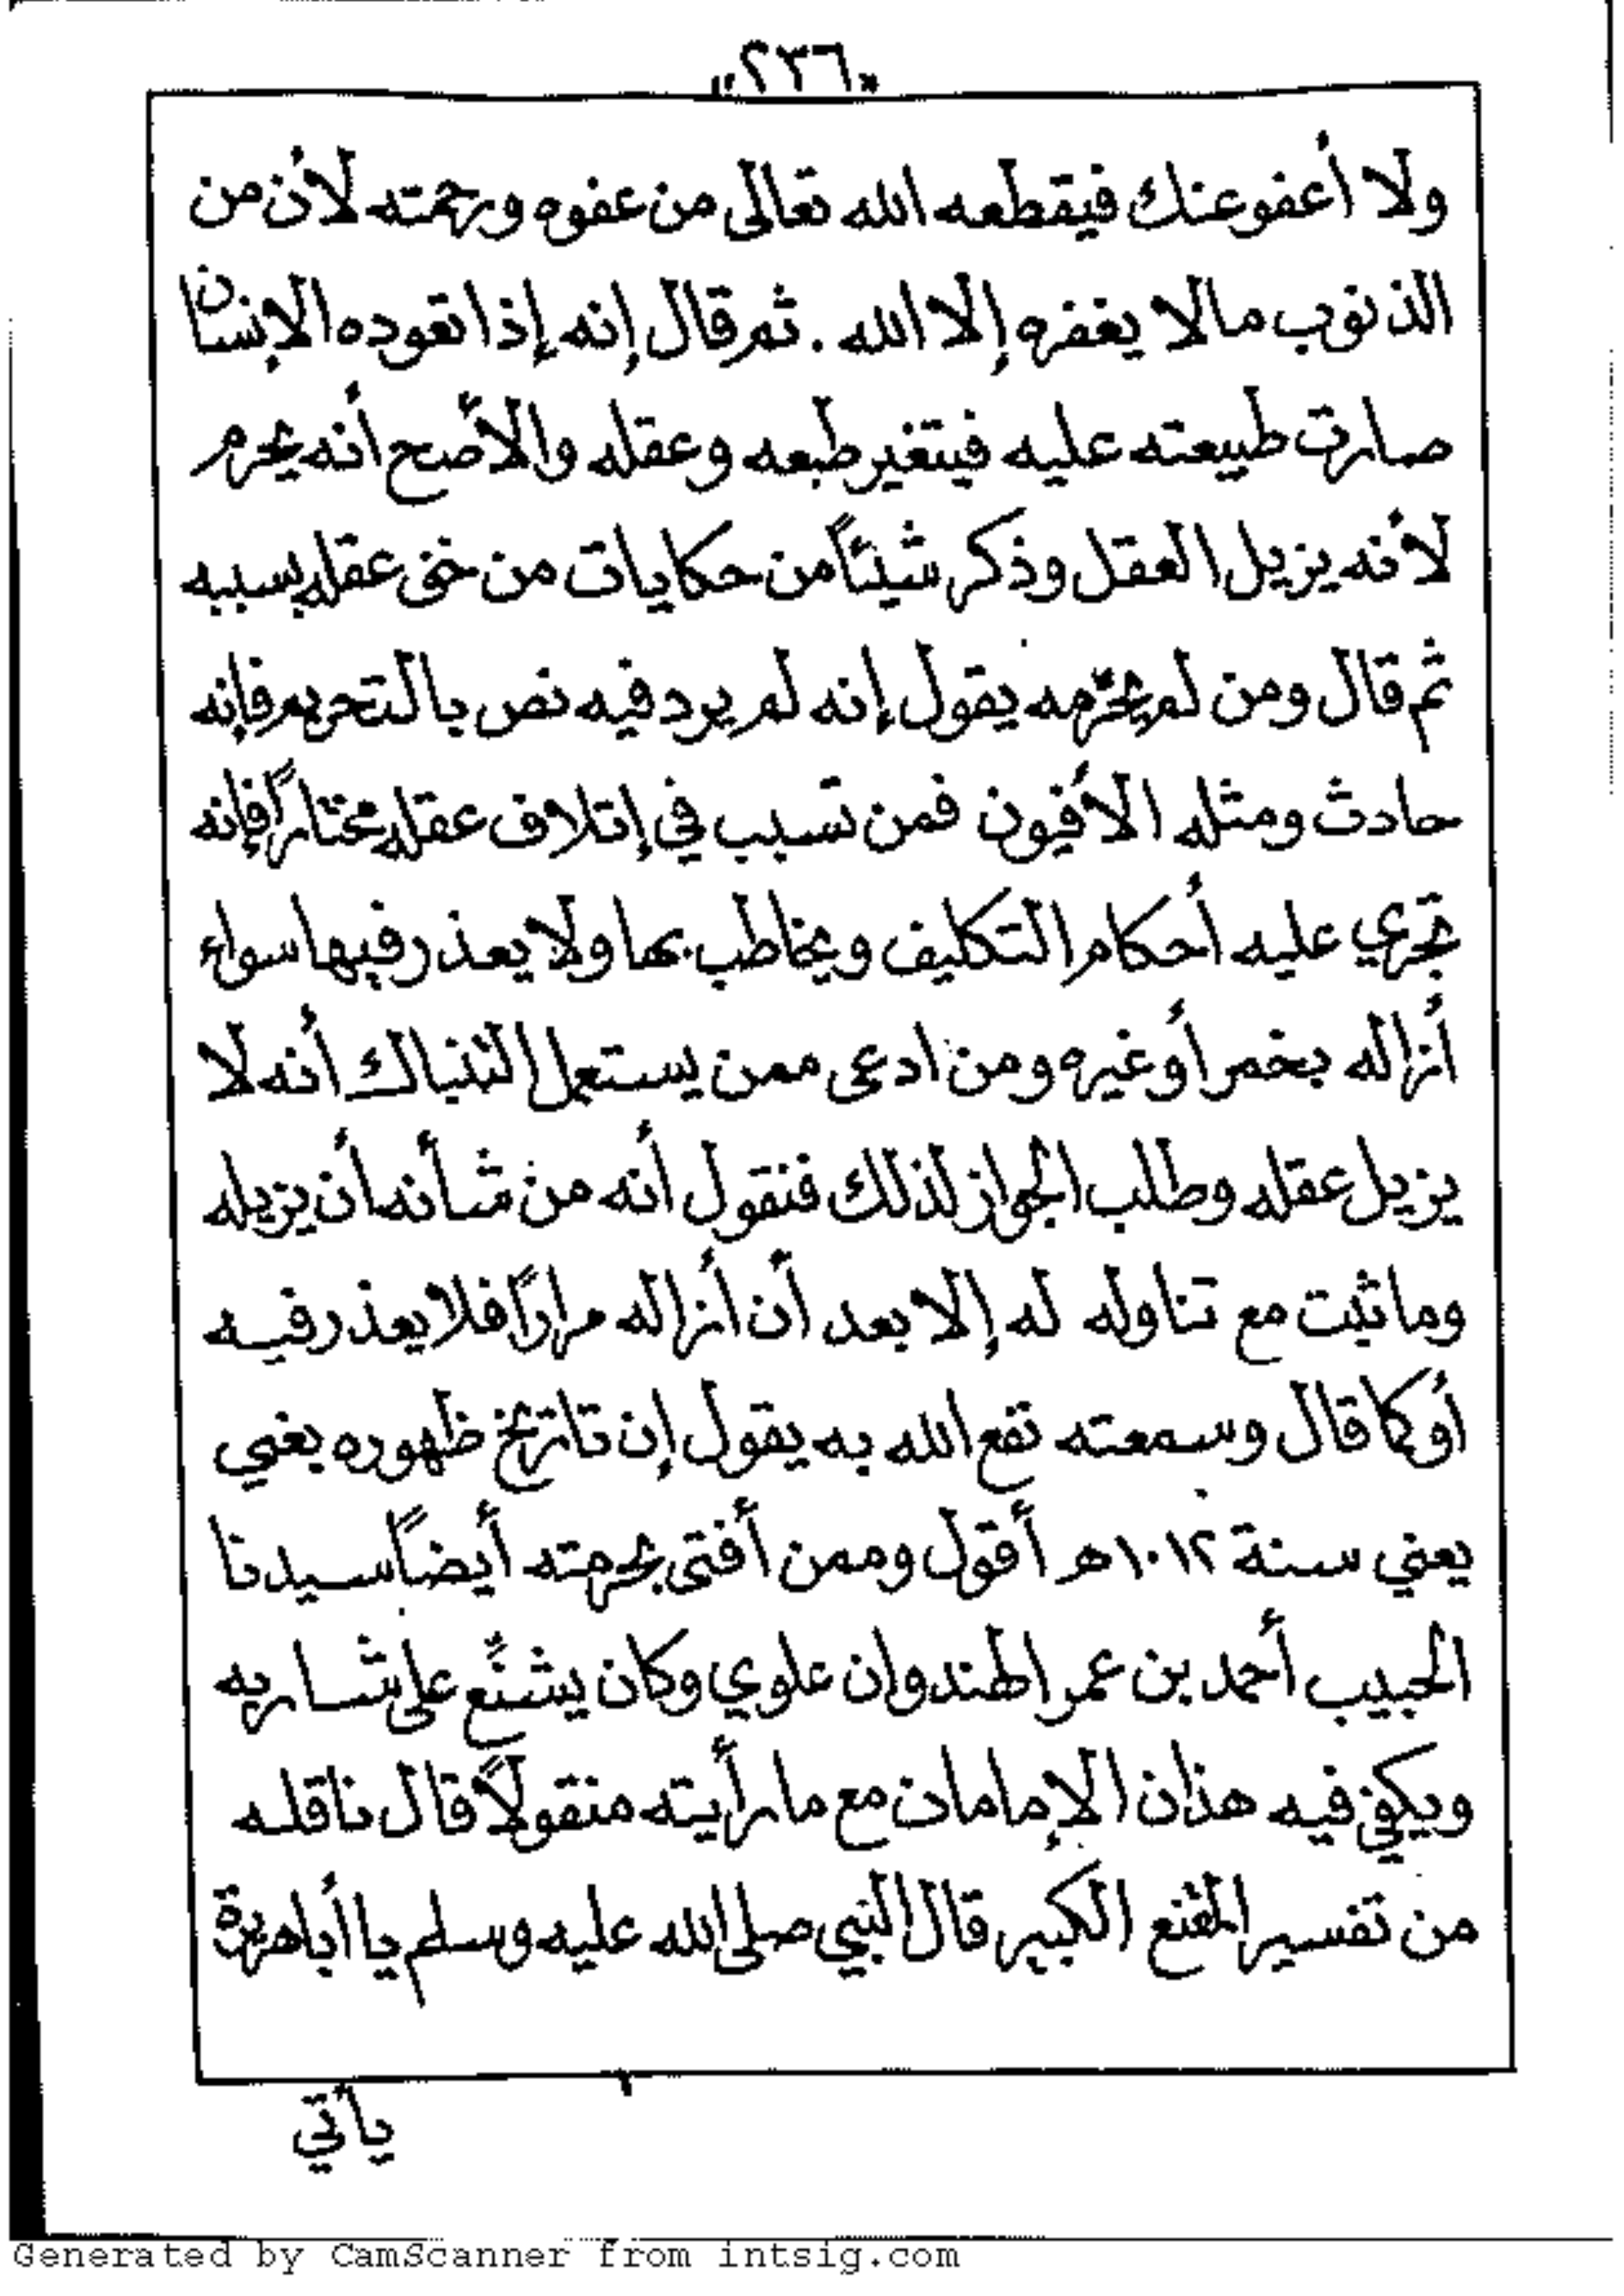 ٢٣٦
ولا أعفو عنك فيقطعه الله تعالى من عفوه ورحمته لأن من
الذنوب مالا يغفره إلا الله . ثم قال إنه إذا تعوده الإنسان
صارت طبيعته عليه فيتغير طبعه وعقله والأصح أنه يحرم
لأنه يزيل العقل وذكر شيئاً من حكايات من خفى عقله بسببه
ثم قال ومن لم يحرّمه يقول إنه لم يرد فيه نص بالتحريم فإنه
حادث ومثله الأفيون فمن تسبب في إتلاف عقله مختاراً فإنه
تجري عليه أحكام التكليف ويخاطب بها ولا يعذر فيها سواء
أزاله بخمر أو غيره ومن ادعى ممن يستعمل التنباك أنه لا
يزيل عقله وطلب الجواز لذلك فنقول أنه من شأنه أن يزيله
وما ثبت مع تناوله له إلا بعد أن أزاله مراراً فلا يعذر فيه
أو كما قال وسمعته نفع الله به يقول إن تاريخ ظهوره بغي
يعني سنة ١٠١٢هـ أقول وممن أفتى بحرمته أيضاً سيدنا
الحبيب أحمد بن عمر الهندوان علوي وكان يشنّع على شاربه
ويكفي فيه هذان الإمامان مع ما رأيته منقولاً قال ناقله
من تفسير المقنع الكبير قال النبي صلى الله عليه وسلم يا أبا هريرة
يأتي
Generated by CamScanner from intsig.com